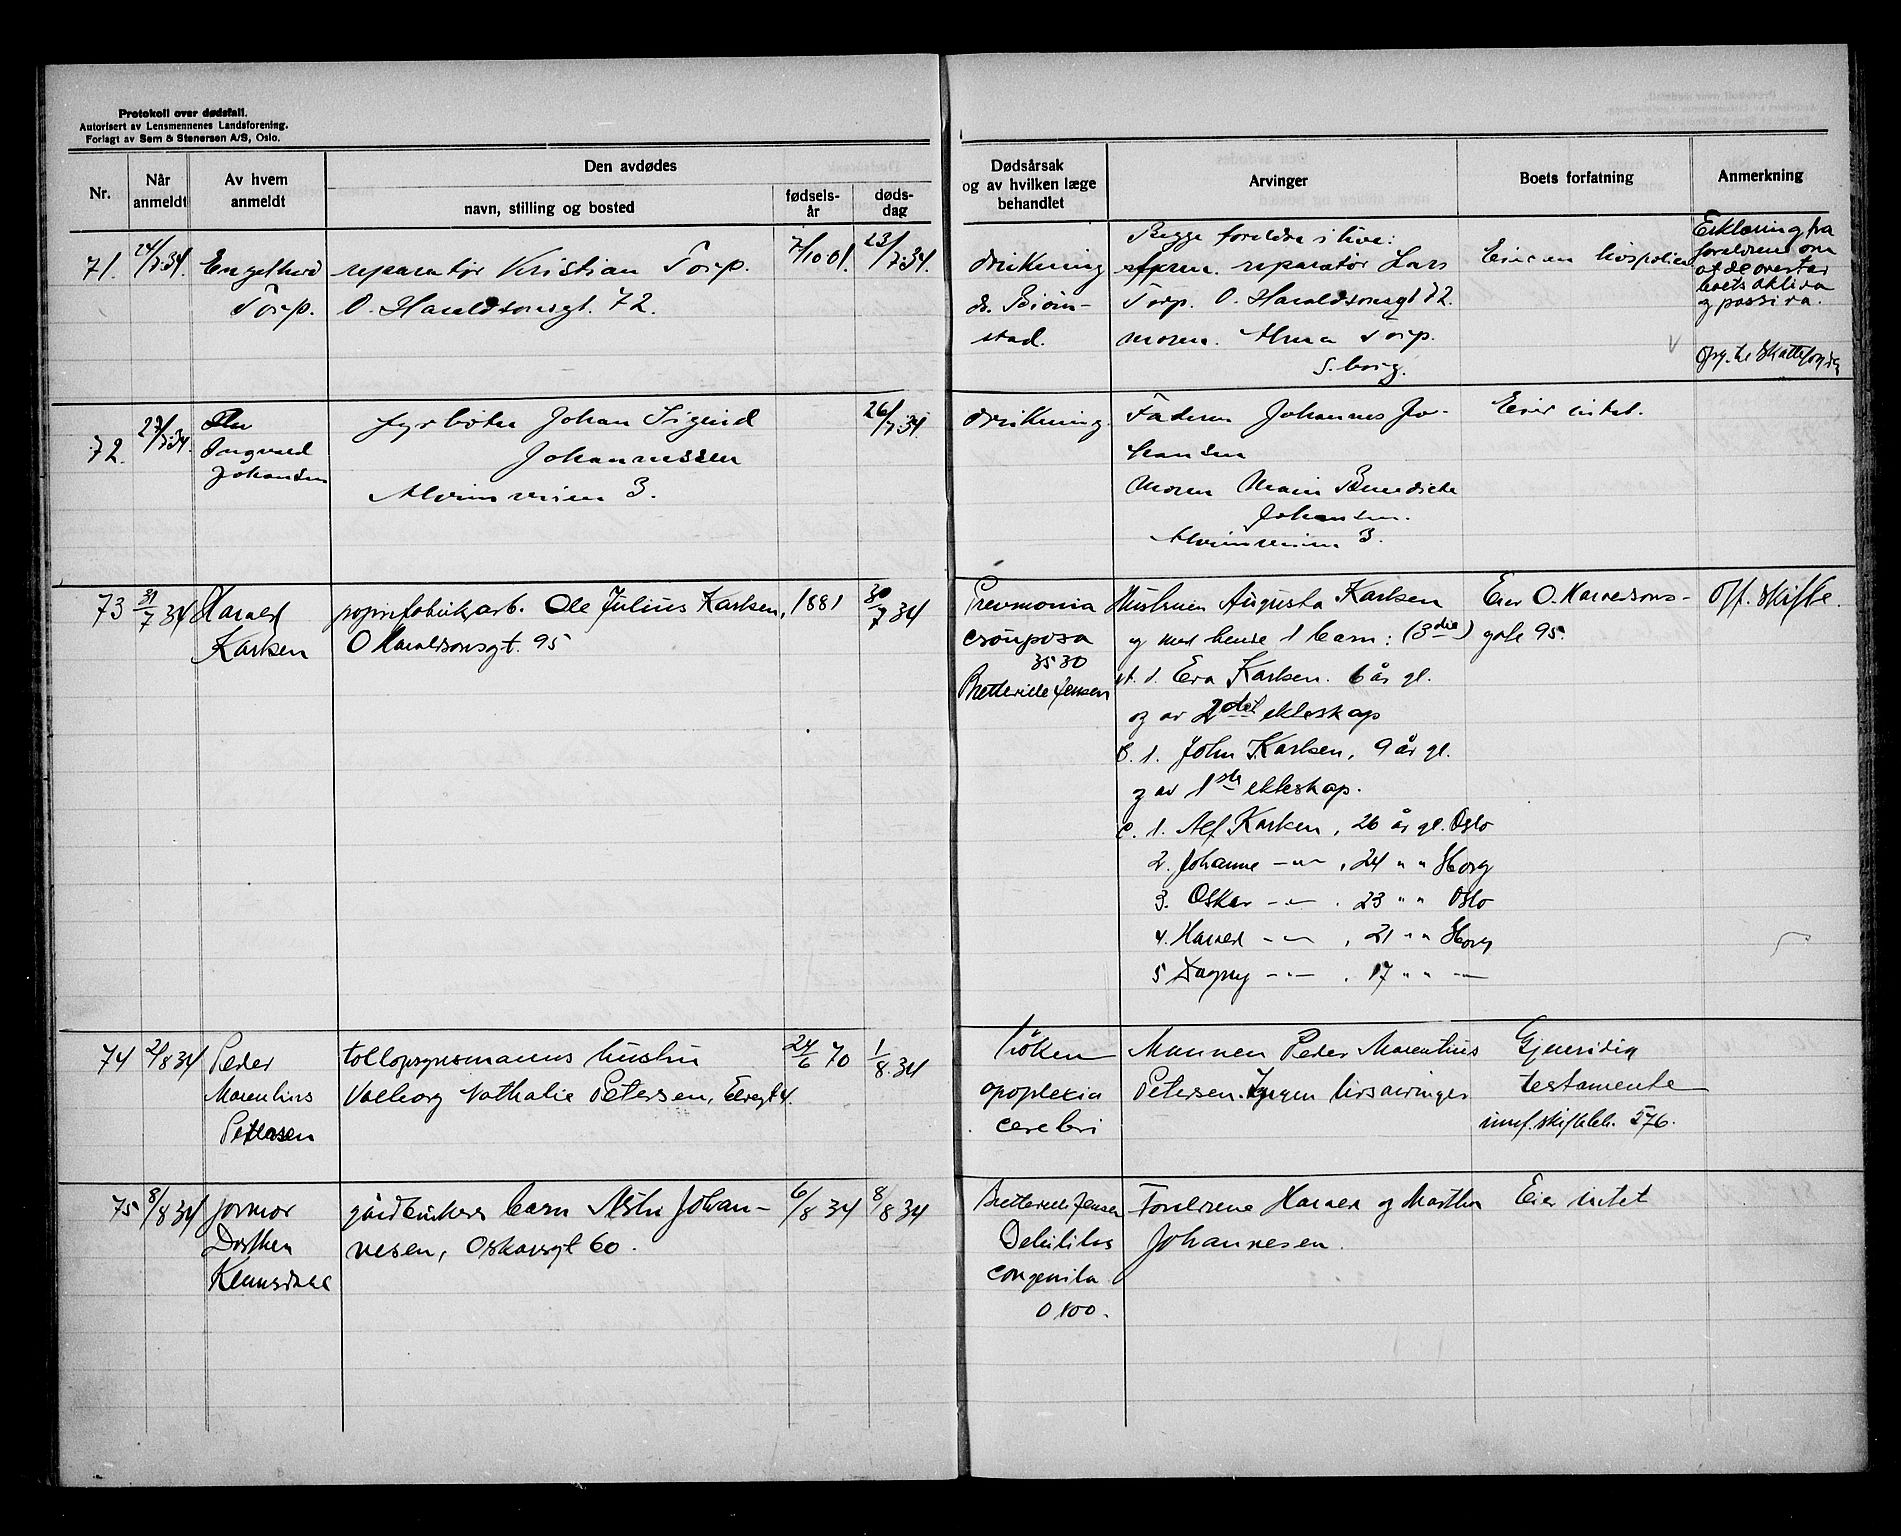 Protokoll over dødsfall.
Autorisert av Lensmennenes Landsforening.
Forlagt av Sem & Stenersen A/S, Oslo.
Nr.
Når anmeldt
Av hvem anmeldt
Den avdødes
navn, stilling og bosted
fødsels-år
døds-dag
Dødsårsak og av hvilken læge behandlet
Arvinger
Boets forfatning
Anmerkning
71. 24/7.34. Engelhard reparatør Kristian Torp. 7/10 01. 23/7.34.
Torp. O. Haraldsonsgt. 72.
drukning
dr. Bjørn-
stad.
Begge foreldre i live:
faren. reparatør Lars
Torp. O. Haraldsonsgt 72.
moren. Alma Torp.
S.borg.
Eier en livspolise
Erklæring fra
foreldrene om
at de overtar
boets aktiva
og passiva.
72. 27/7.34. Ingvald fyrbøter Johan Sigurd 26/7.34.
Johansen Johannessen
Alvimveien 3.
drukning.
Faderen Johannes Jo-
hansen
Moren Marie Benedicte
Johansen.
Alvimveien 3.
Eier intet.
73 31/7 34 Harald papirfabrikarb. Ole Julius Karlsen, 1881 30/7 34
Karlsen O Haraldsonsgt. 95
Pneumonia
crouposa
3530
Bretteville Jensen
Hustruen Augusta Karlsen
og med henne 1 barn: (3die)
1. Eva Karlsen. 6 år gl.
og av 2det ekteskap
B. 1. John Karlsen, 9 år gl.
og av 1ste ekteskap.
C. 1. Alf Karlsen, 26 år gl. Oslo
2. Johanne -"- , 24 " " Sborg
3. Oskar -"- . 23 " " Oslo
4. Harald -"- , 21 " " Sborg
5 Dagny -"- . 17 " " -"-
Eier O. Haraldsons-
gate 95.
Off. skifte.
74 2/8 34 Peder tollopsynsmanns hustru 24/6 70 1/8. 34
Marentius Valborg Nathalie Petersen, 4.
Petersen
Frøken
apoplexia
cerebri
Mannen Peder Marentius
Petersen. Ingen livsarvinger
Gjensidig
testamente
innf. 576.
75 8/8 34 Jormor gårdbrukers barn Johan- 6/8 34 8/8 34
Dorthea nesen, Oskarsgt 60.
Bretteville Jensen
Debilitas
congenita
0100.
Foreldrene Harald og Martha
Johannesen.
Eier intet